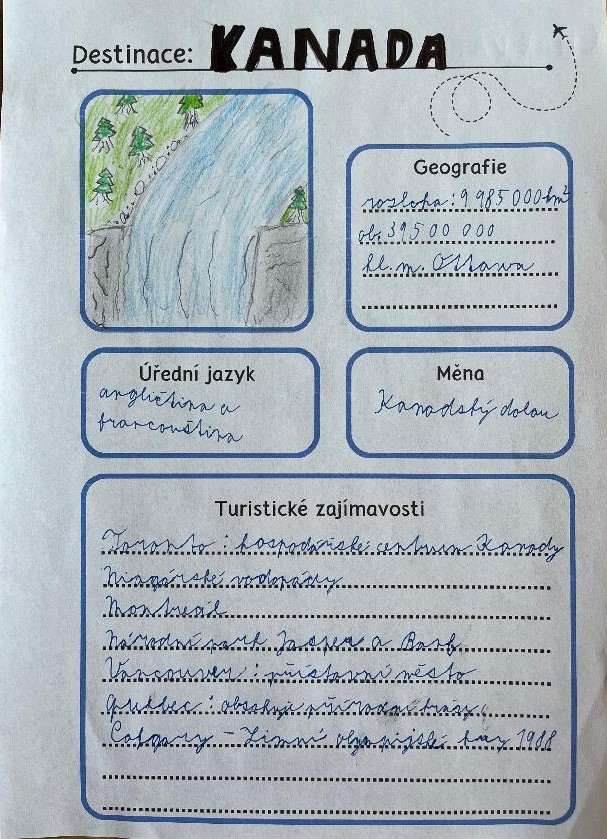 Destinace: KANADA
Geografie
rozloha: 9 985 000 km²
ob. 39500 000
hl. m. Ottawa
Úřední jazyk
angličtina a
francouština
Měna
Kanadský dolar
Turistické zajímavosti
Toronto: hospodářské centrum Kanady
Niagárské vodopády
Montreal
Národní park Jasper a Banf
Vancouver: přístavní město
Quebec: obsahuje přírodní krasy
Calgary - Zimní olympijské hry 1988